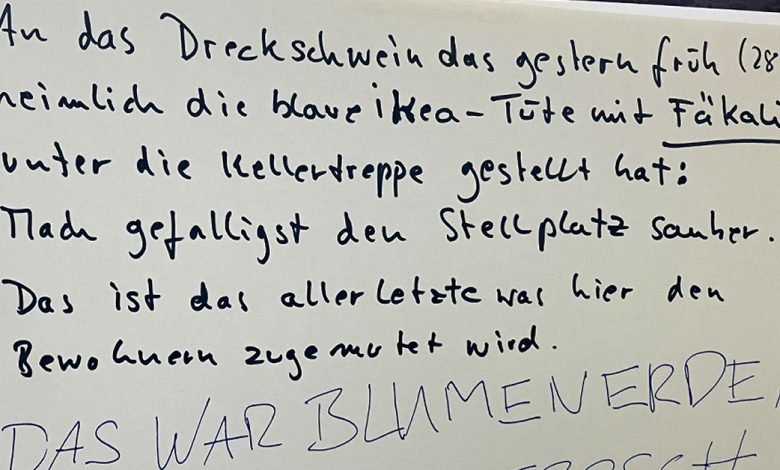 An das Dreckschwein das gestern früh (28
heimlich die blaue ikea-Tüte mit Fäkali
unter die Kellertreppe gestellt hat:
Mach gefälligst den Stellplatz sauber.
Das ist das allerletzte was hier den
Bewohnern zugemutet wird.
DAS WAR BLUMENERDE,